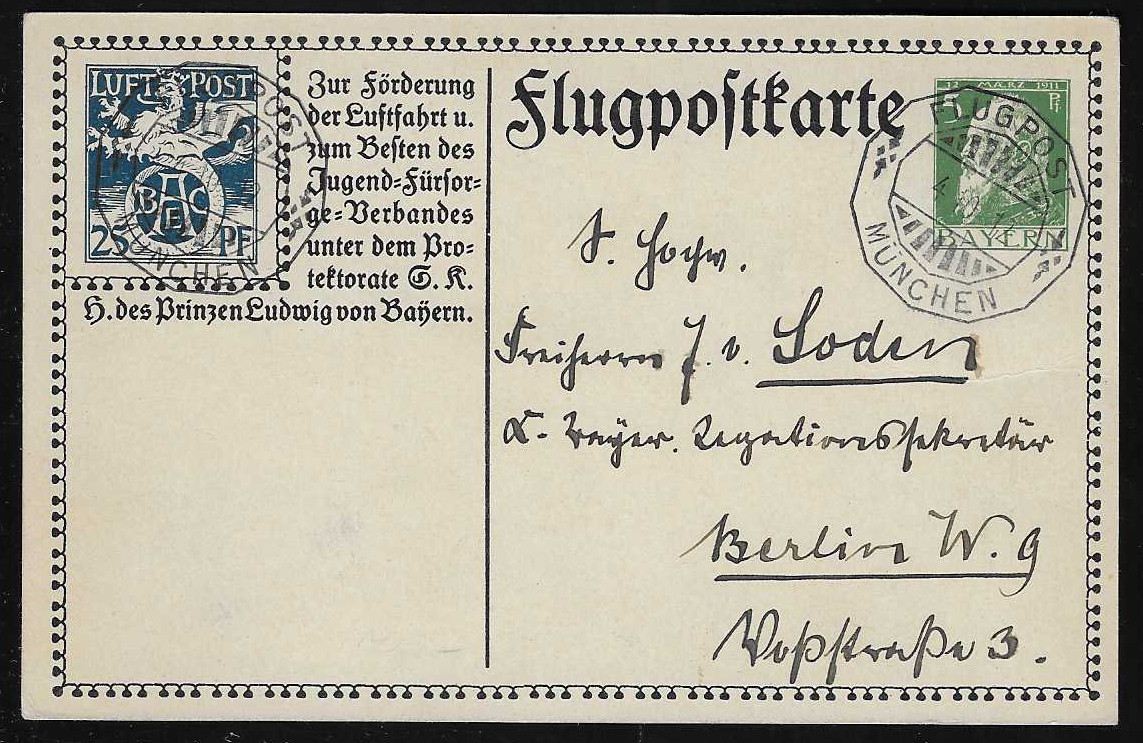 LUFT POST
BAEC
25 PF
Zur Förderung
der Luftfahrt u.
zum Besten des
Jugend=Fürsor=
ge=Verbandes
unter dem Pro=
tektorate S. K.
H. des Prinzen Ludwig von Bayern.
FLUGPOST
MÜNCHEN
Flugpostkarte
12. MÄRZ 1911
5 Pf
BAYERN
FLUGPOST
MÜNCHEN
S. Hochw.
Freiherrn J. v. Soden
K. Bayer. Legationssekretär
Berlin W. 9
Voßstraße 3.